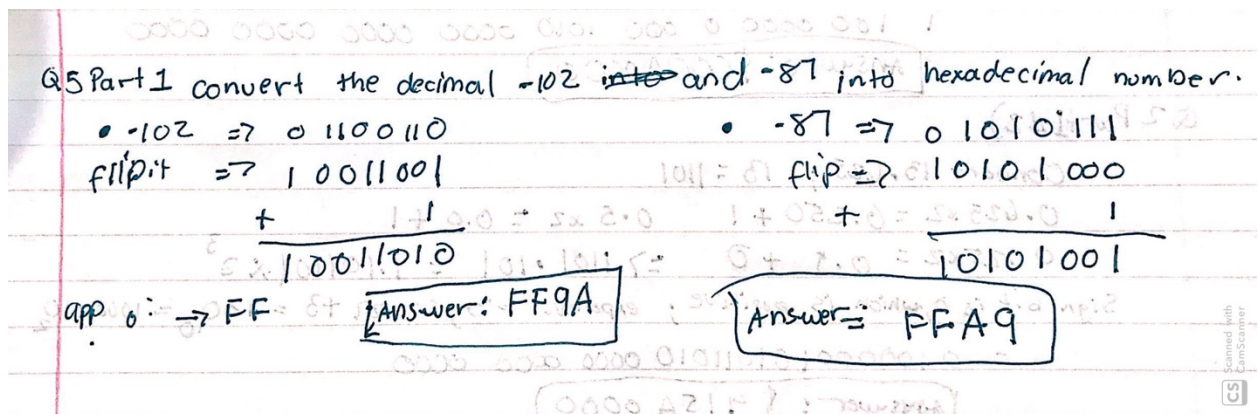 Q5 Part 1 convert the decimal -102 and -87 into hexadecimal number.
• -102 => 01100110
flip it => 10011001
+ 1
10011010
app o: → FF
Answer: FF9A
• -87 => 01010111
flip => 10101000
+ 1
10101001
Answer: FFA9
CS Scanned with
CamScanner